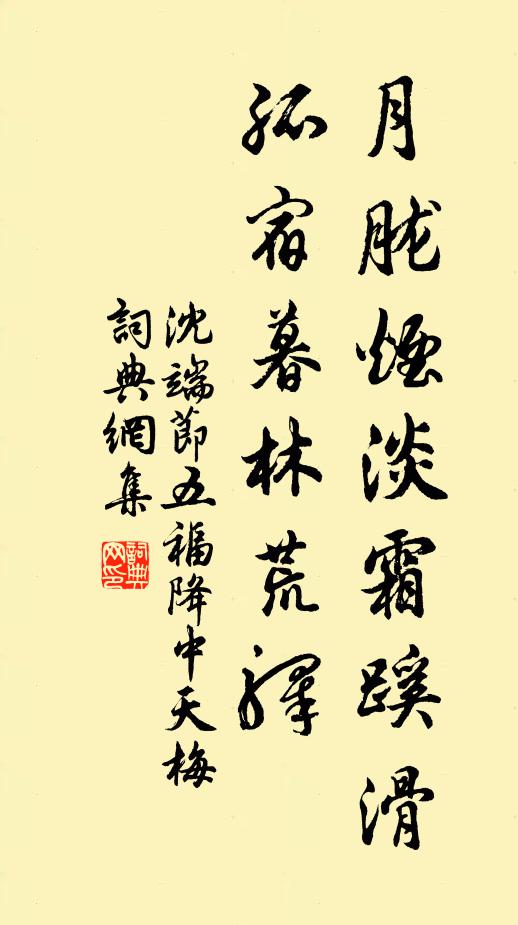 月胧煙淡霜蹊滑
孤宿暮林荒驛
沈端節五福降中天梅
詞典網集
詞典網印